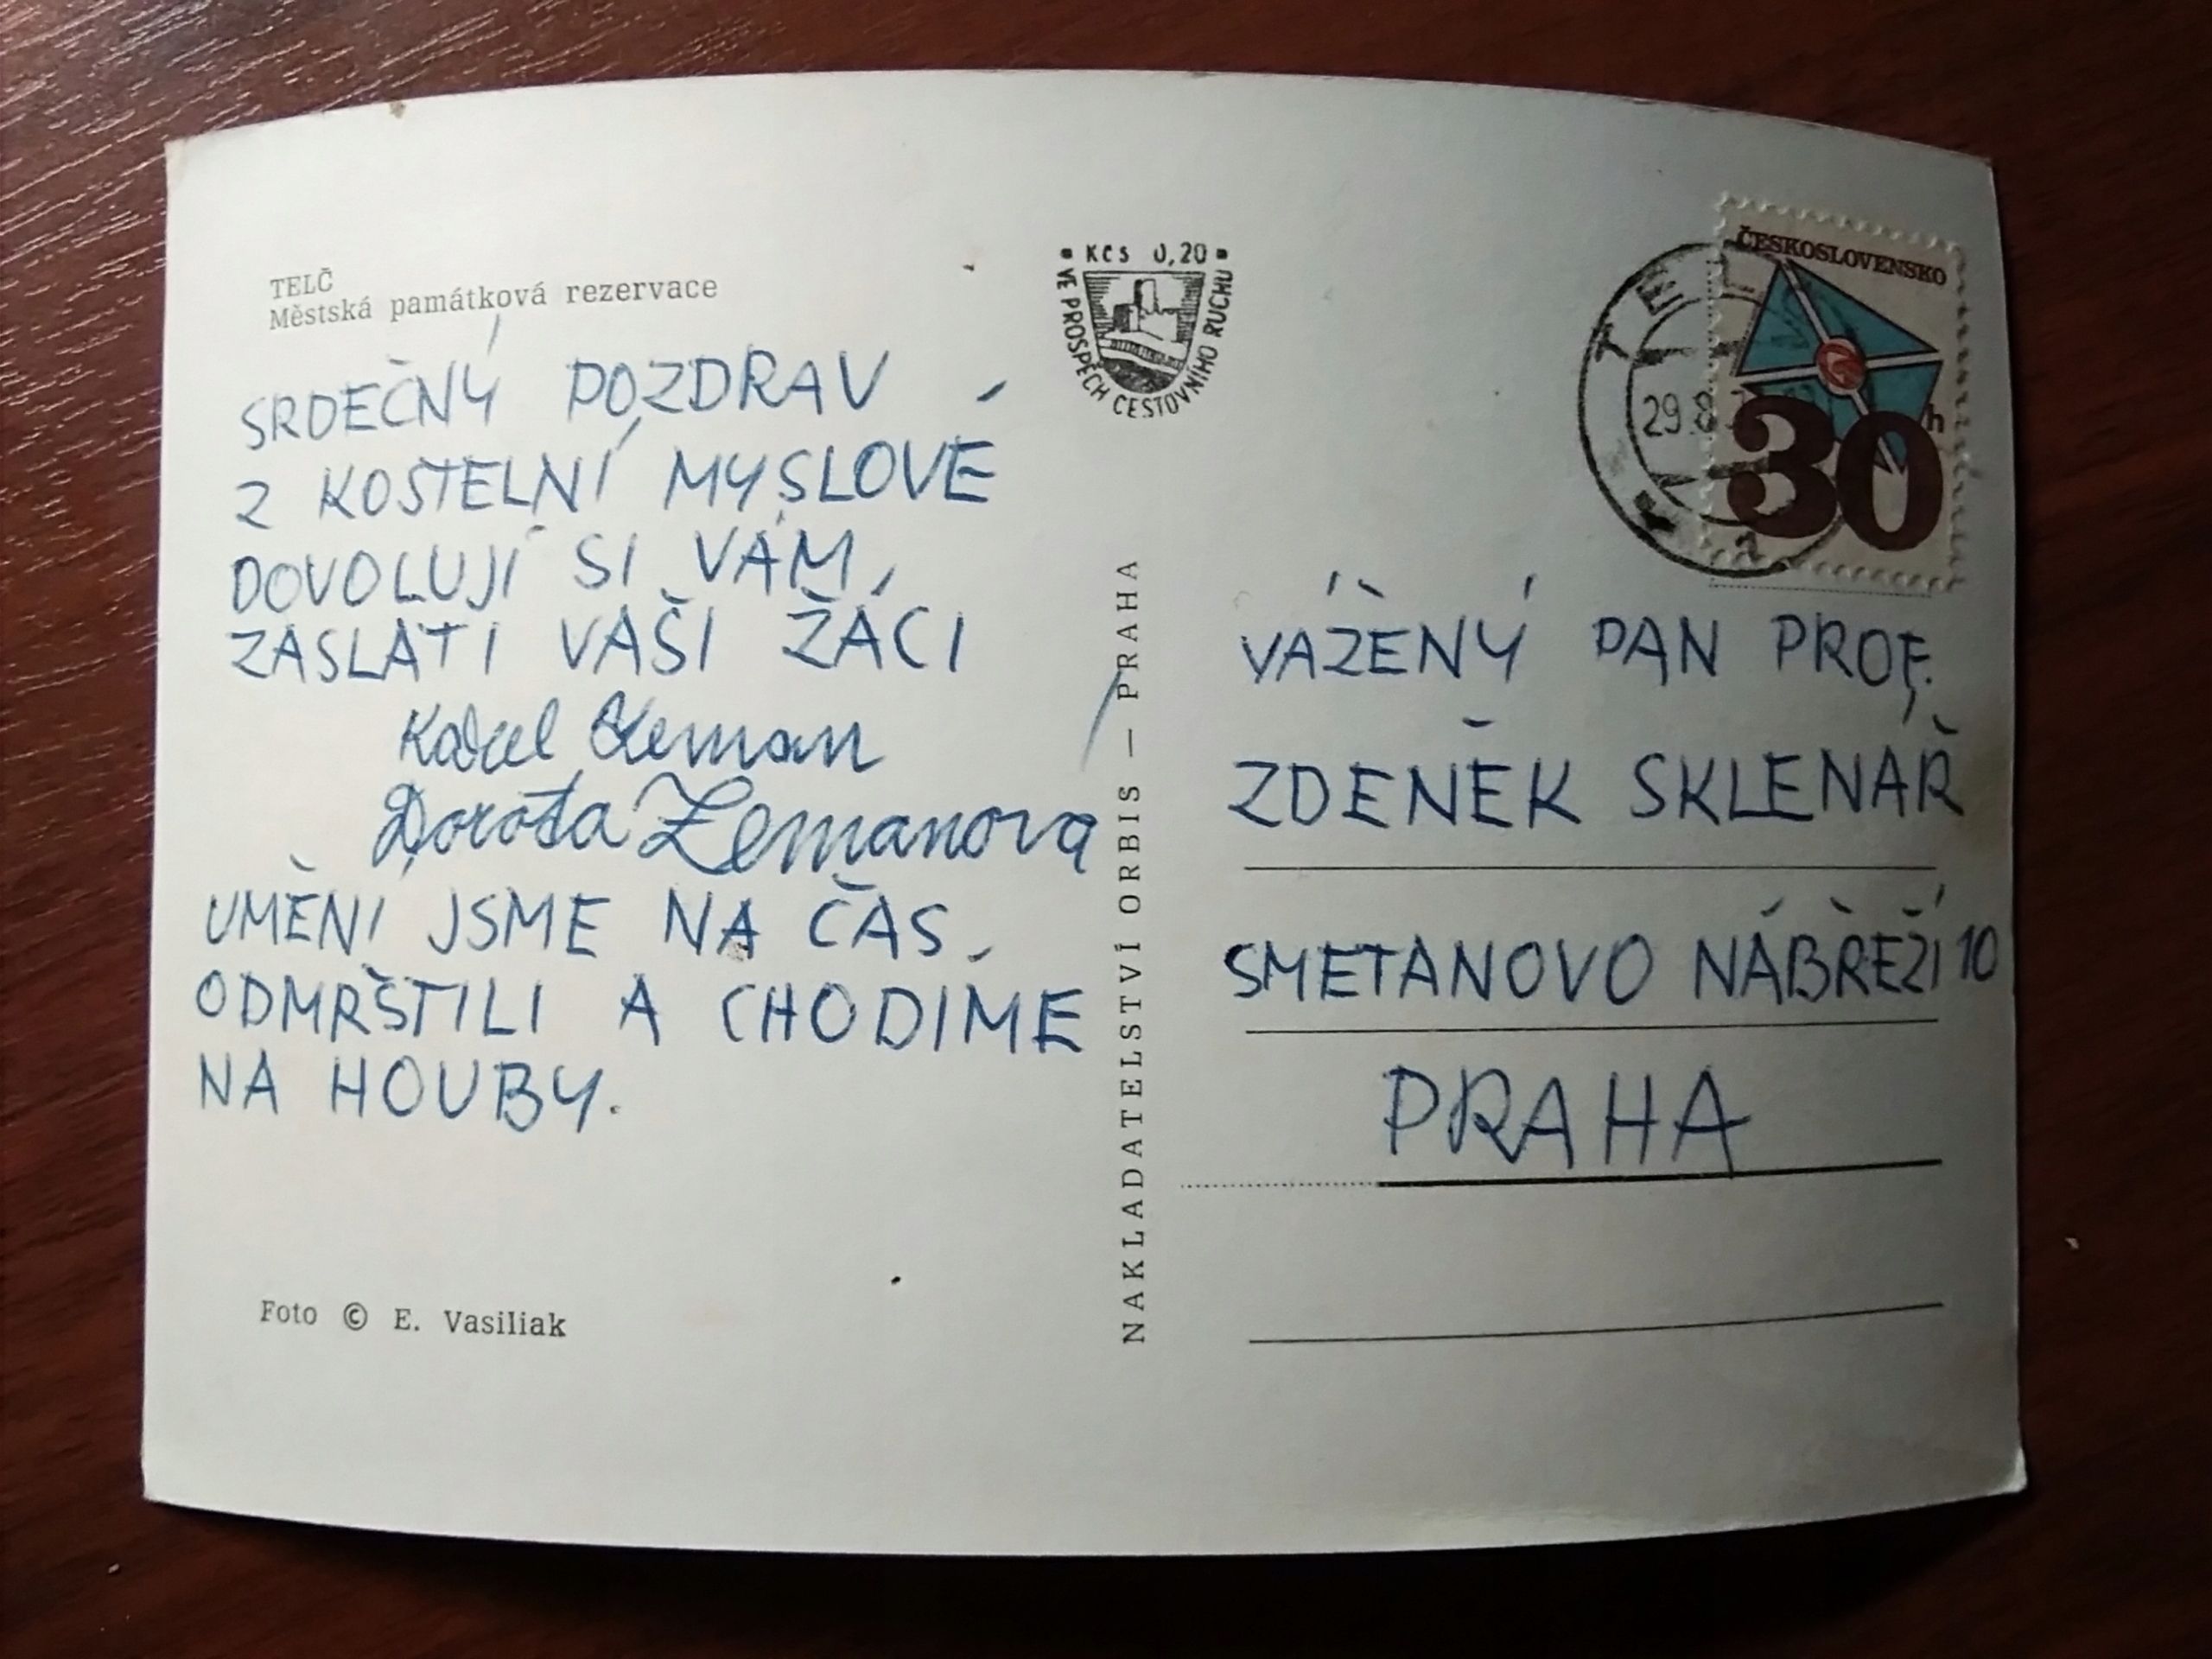 TELČ
Městská památková rezervace
SRDEČNÝ POZDRAV
Z KOSTELNÍ MYSLOVÉ
DOVOLUJÍ SI VÁM
ZASLATI VAŠI ŽÁCI
Karel Zeman
Dorota Zemanova
UMĚNÍ JSME NA ČAS
ODMRŠTILI A CHODÍME
NA HOUBY.
Foto © E. Vasiliak
Kčs 0,20
VE PROSPĚCH CESTOVNÍHO RUCHU
NAKLADATELSTVÍ ORBIS — PRAHA
ČESKOSLOVENSKO
30 h
TELČ
29.8
VÁŽENÝ PAN PROF.
ZDENĚK SKLENÁŘ
SMETANOVO NÁBŘEŽÍ 10
PRAHA